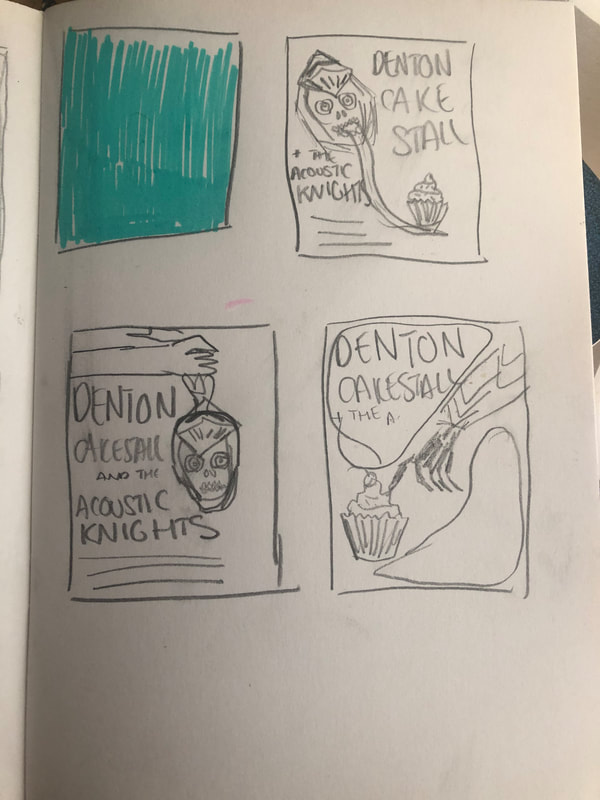 DENTON
CAKE
STALL
+ THE
ACOUSTIC
KNIGHTS
DENTON
CAKESTALL
AND THE
ACOUSTIC
KNIGHTS
DENTON
CAKESTALL
+ THE A.